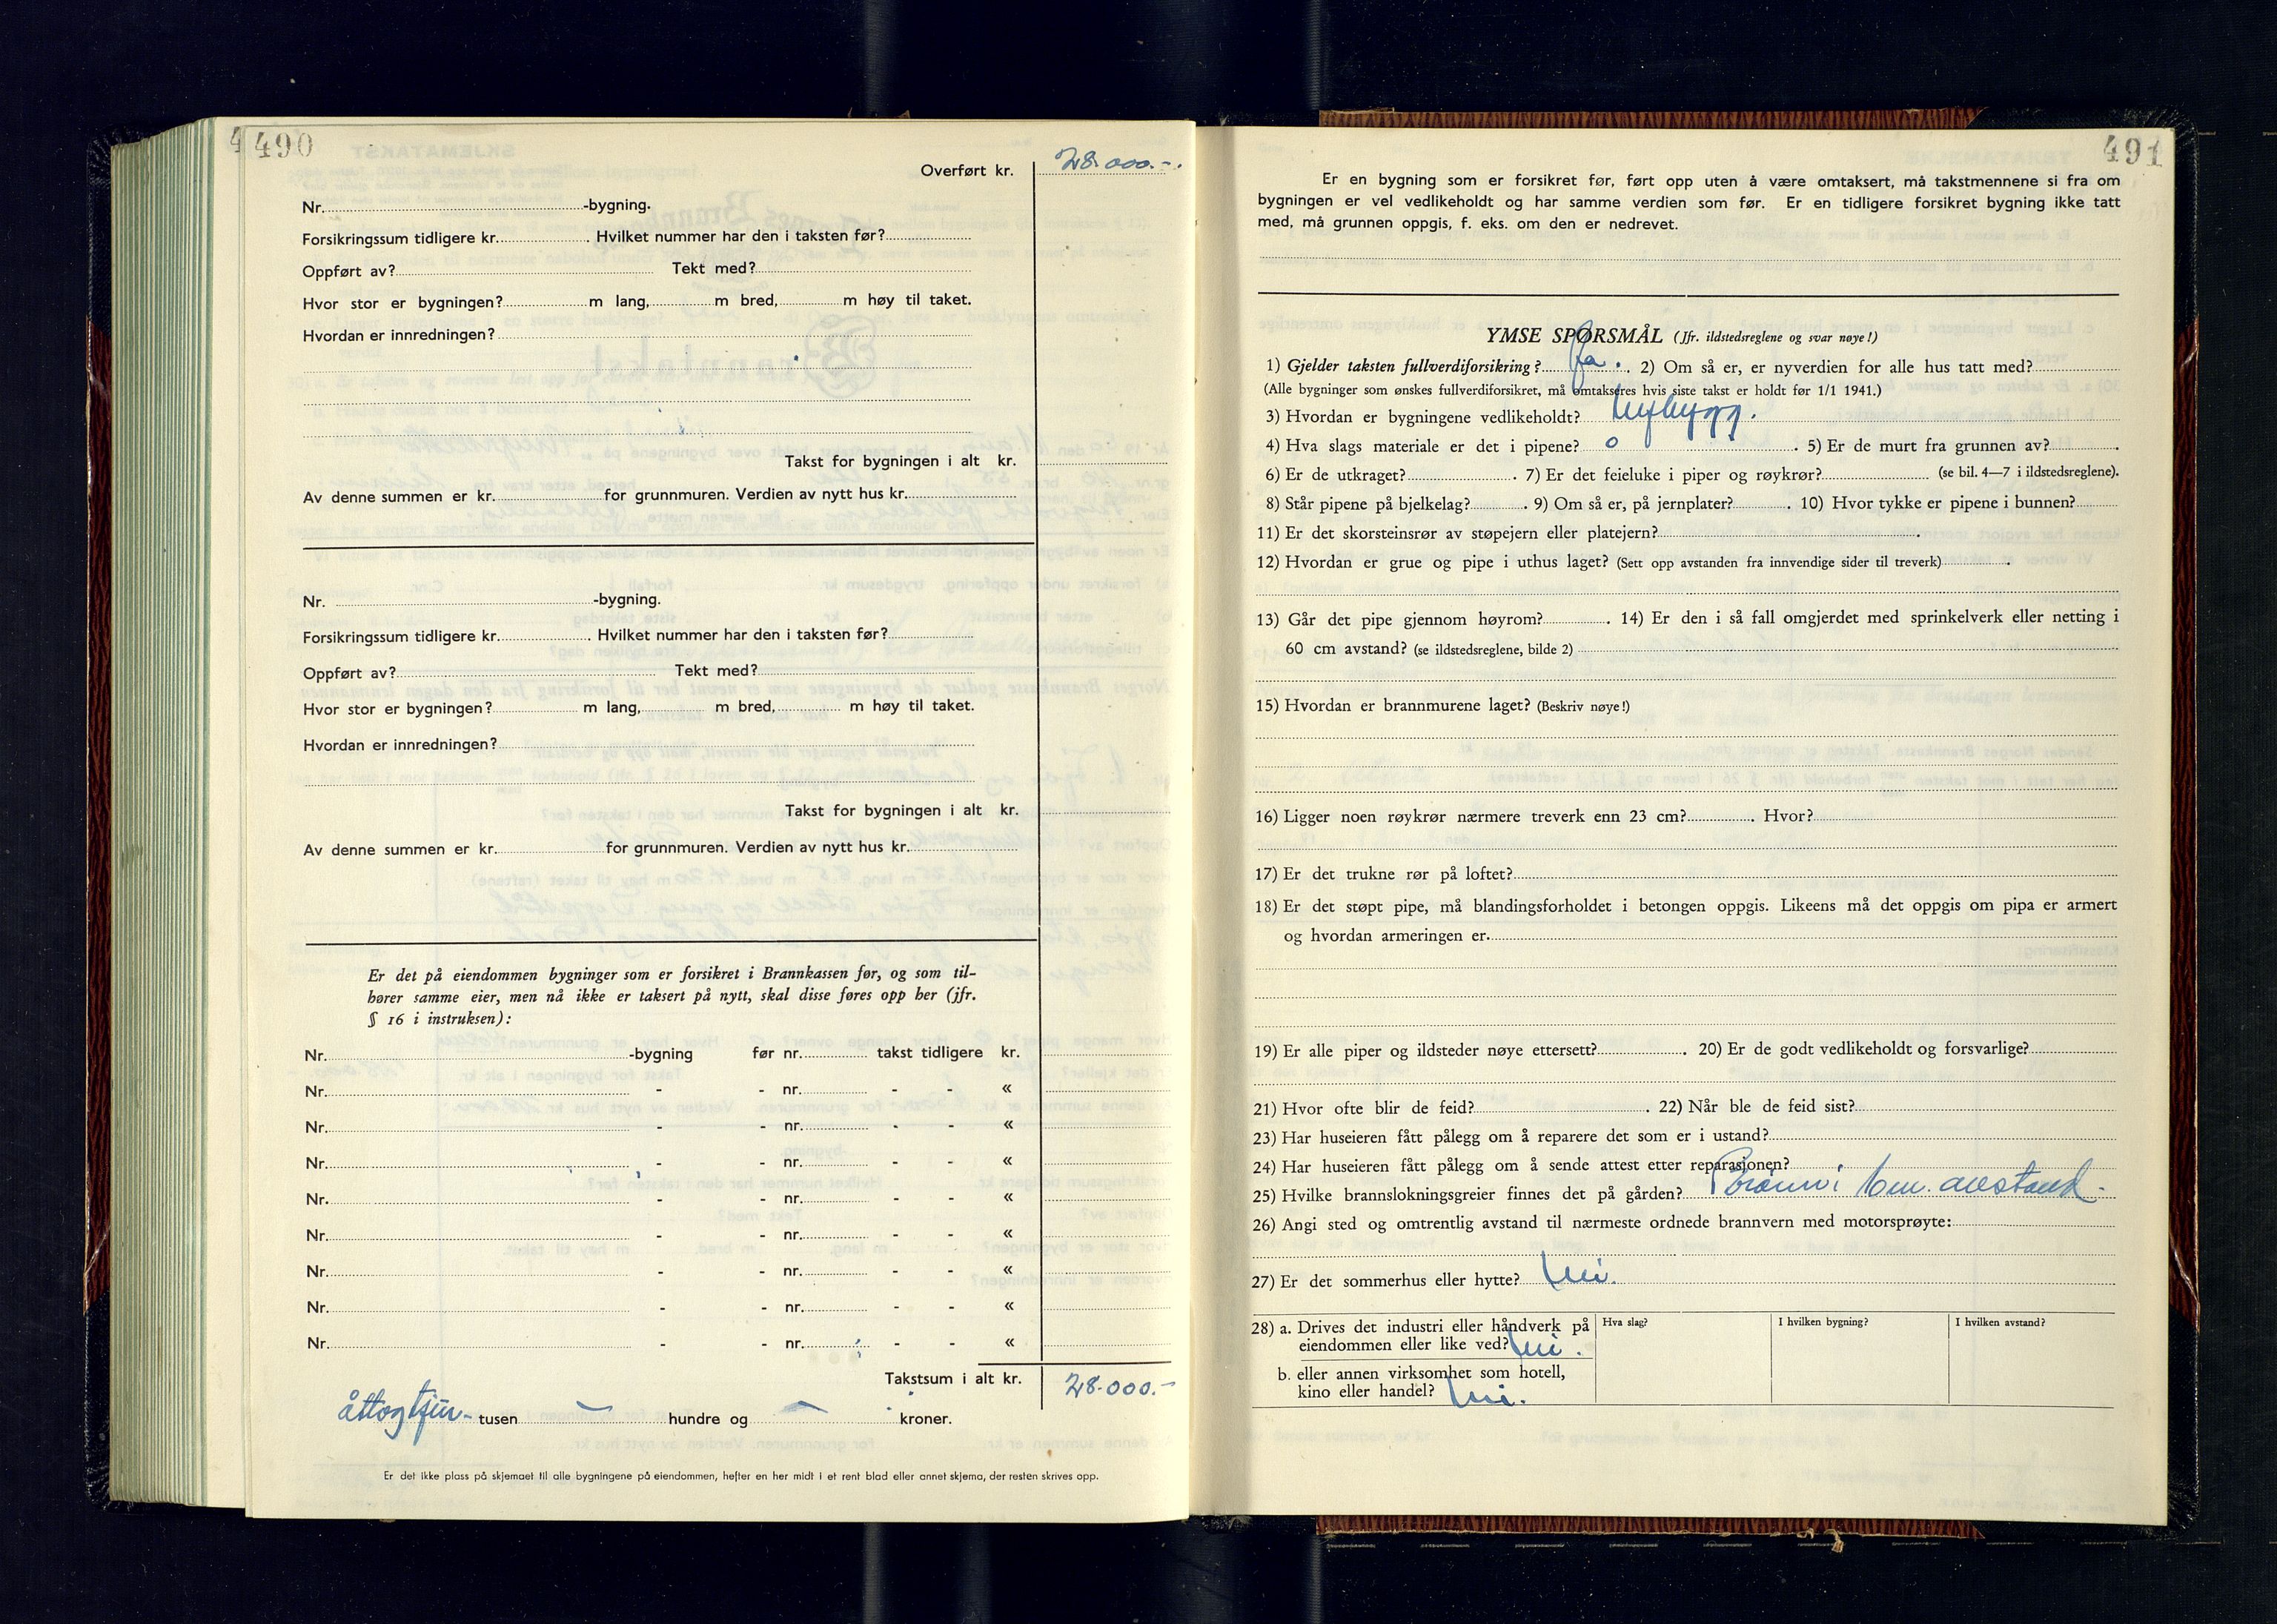 490
Overført kr. 28.000.-
Nr. -bygning.
Forsikringssum tidligere kr. . Hvilket nummer har den i taksten før?
Oppført av? Tekt med?
Hvor stor er bygningen? m lang, m bred, m høy til taket.
Hvordan er innredningen?
Takst for bygningen i alt kr.
Av denne summen er kr. for grunnmuren. Verdien av nytt hus kr.
Nr. -bygning.
Forsikringssum tidligere kr. . Hvilket nummer har den i taksten før?
Oppført av? Tekt med?
Hvor stor er bygningen? m lang, m bred, m høy til taket.
Hvordan er innredningen?
Takst for bygningen i alt kr.
Av denne summen er kr. for grunnmuren. Verdien av nytt hus kr.
Er det på eiendommen bygninger som er forsikret i Brannkassen før, og som til-
hører samme eier, men nå ikke er taksert på nytt, skal disse føres opp her (jfr.
§ 16 i instruksen):
Nr. -bygning før nr. takst tidligere kr.
Nr. - - nr. - - «
Nr. - - nr. - - «
Nr. - - nr. - - «
Nr. - - nr. - - «
Nr. - - nr. - - «
Nr. - - nr. - - «
Nr. - - nr. - - «
Nr. - - nr. - - «
Takstsum i alt kr. 28.000.-
åttogtjue- tusen - hundre og - kroner.
Er det ikke plass på skjemaet til alle bygningene på eiendommen, hefter en her midt i et rent blad eller annet skjema, der resten skrives opp.
491
Er en bygning som er forsikret før, ført opp uten å være omtaksert, må takstmennene si fra om
bygningen er vel vedlikeholdt og har samme verdien som før. Er en tidligere forsikret bygning ikke tatt
med, må grunnen oppgis, f. eks. om den er nedrevet.
YMSE SPØRSMÅL (Jfr. ildstedsreglene og svar nøye!)
1) Gjelder taksten fullverdiforsikring? Ja. 2) Om så er, er nyverdien for alle hus tatt med?
(Alle bygninger som ønskes fullverdiforsikret, må omtakseres hvis siste takst er holdt før 1/1 1941.)
3) Hvordan er bygningene vedlikeholdt? Nybygg.
4) Hva slags materiale er det i pipene? 0 . 5) Er de murt fra grunnen av?
6) Er de utkraget? . 7) Er det feieluke i piper og røykrør? (se bil. 4—7 i ildstedsreglene).
8) Står pipene på bjelkelag? . 9) Om så er, på jernplater? . 10) Hvor tykke er pipene i bunnen?
11) Er det skorsteinsrør av støpejern eller platejern? .
12) Hvordan er grue og pipe i uthus laget? (Sett opp avstanden fra innvendige sider til treverk) .
13) Går det pipe gjennom høyrom? . 14) Er den i så fall omgjerdet med sprinkelverk eller netting i
60 cm avstand? (se ildstedsreglene, bilde 2)
15) Hvordan er brannmurene laget? (Beskriv nøye!)
16) Ligger noen røykrør nærmere treverk enn 23 cm? . Hvor?
17) Er det trukne rør på loftet?
18) Er det støpt pipe, må blandingsforholdet i betongen oppgis. Likeens må det oppgis om pipa er armert
og hvordan armeringen er.
19) Er alle piper og ildsteder nøye ettersett? . 20) Er de godt vedlikeholdt og forsvarlige?
21) Hvor ofte blir de feid? . 22) Når ble de feid sist?
23) Har huseieren fått pålegg om å reparere det som er i ustand?
24) Har huseieren fått pålegg om å sende attest etter reparasjonen?
25) Hvilke brannslokningsgreier finnes det på gården? Brønn i 6 m. avstand.
26) Angi sted og omtrentlig avstand til nærmeste ordnede brannvern med motorsprøyte:
27) Er det sommerhus eller hytte? Nei.
28) a. Drives det industri eller håndverk på Hva slag? I hvilken bygning? I hvilken avstand?
eiendommen eller like ved? Nei.
b. eller annen virksomhet som hotell,
kino eller handel? Nei.